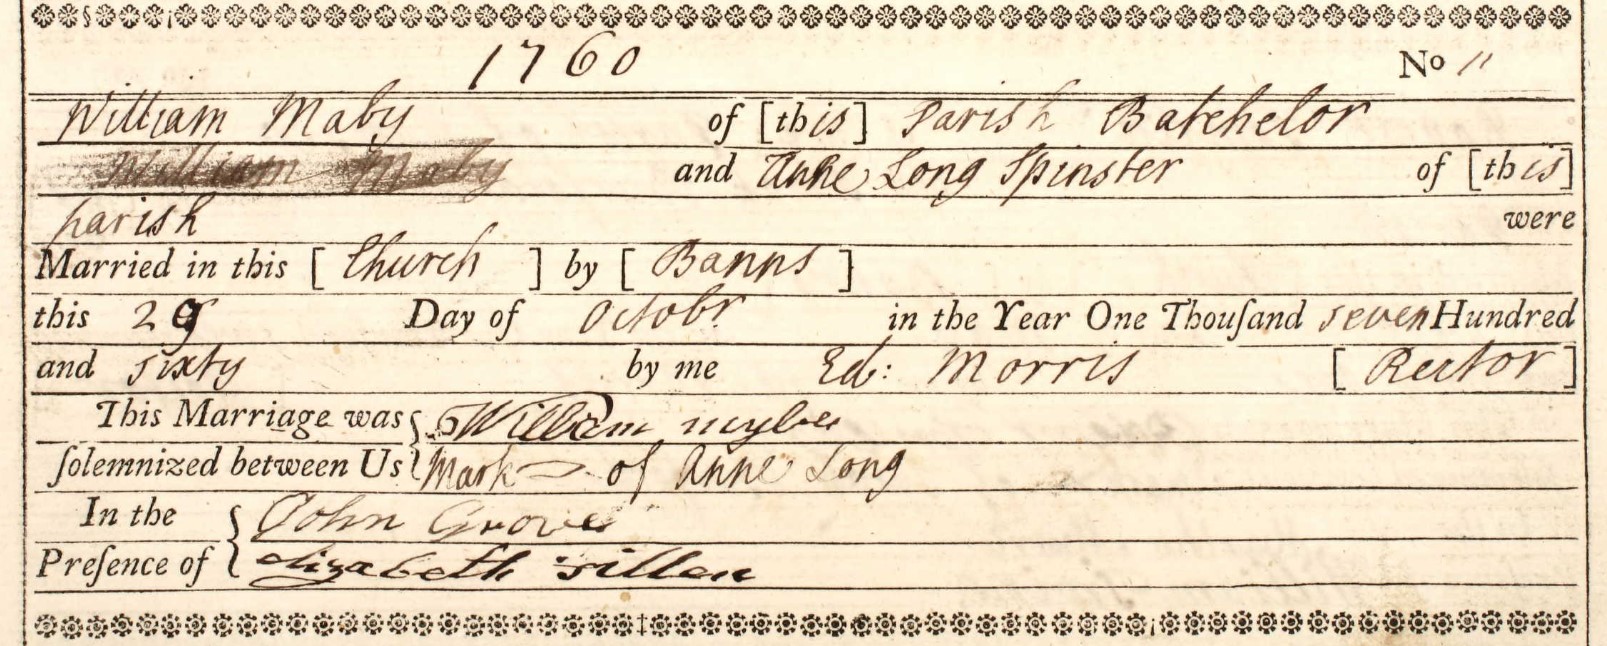 1760 No 11
William Maby of [this] Parish Batchelor
William Maby and Anne Long Spinster of [this]
parish were
Married in this [ Church ] by [ Banns ]
this 29 Day of Octobr in the Year One Thouſand seven Hundred
and sixty by me Ed: Morris [ Rector ]
This Marriage was { William mybe
ſolemnized between Us { Mark of Anne Long
In the { John Grove
Preſence of { elizabeth